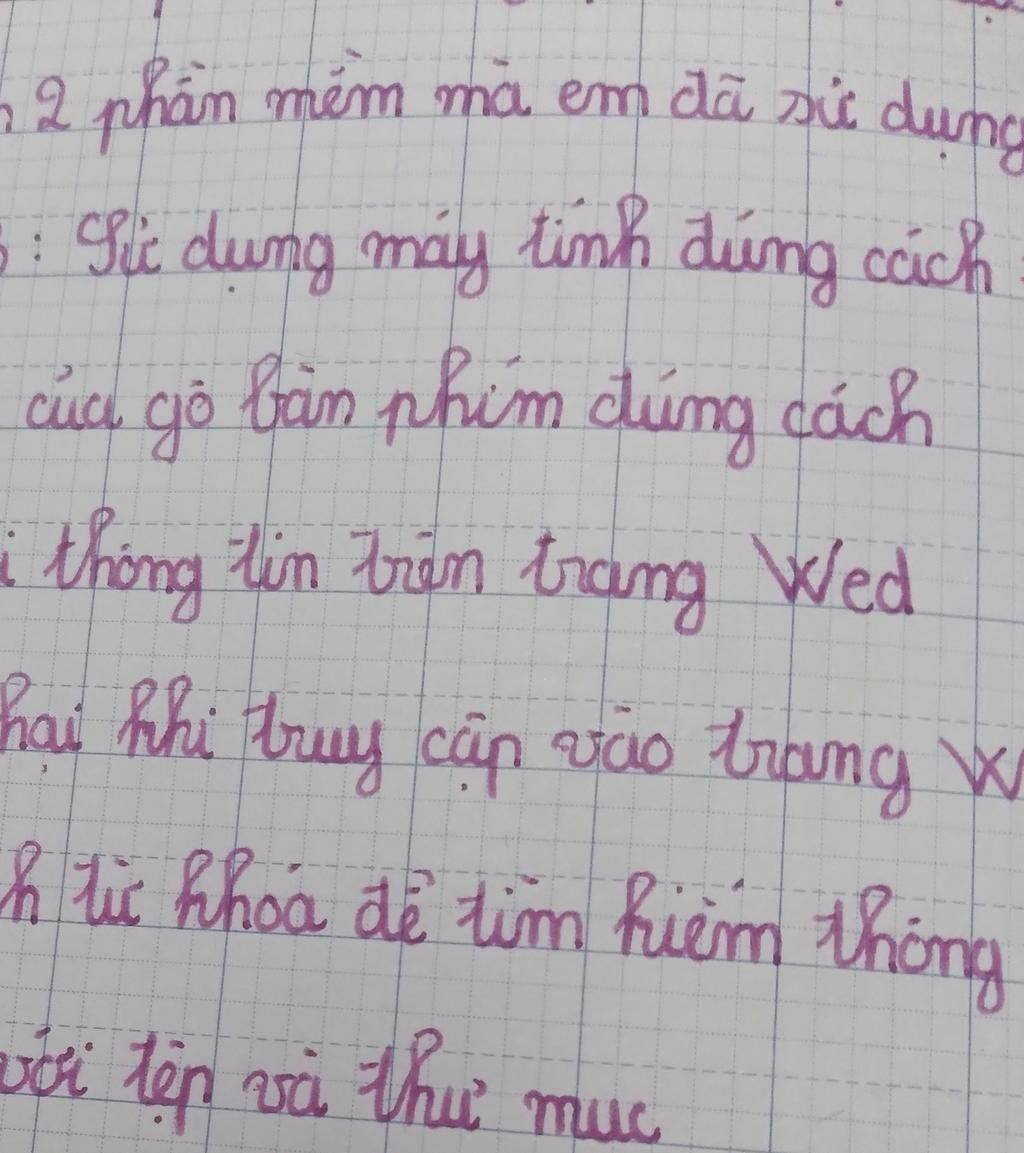 2 phần mềm mà em đã sử dụng
: Sử dụng máy tính đúng cách
của gõ bàn phím đúng cách
thông tin trên trang Wed
hại khi truy cập vào trang W
từ khóa để tìm kiếm thông
với tệp và thư mục